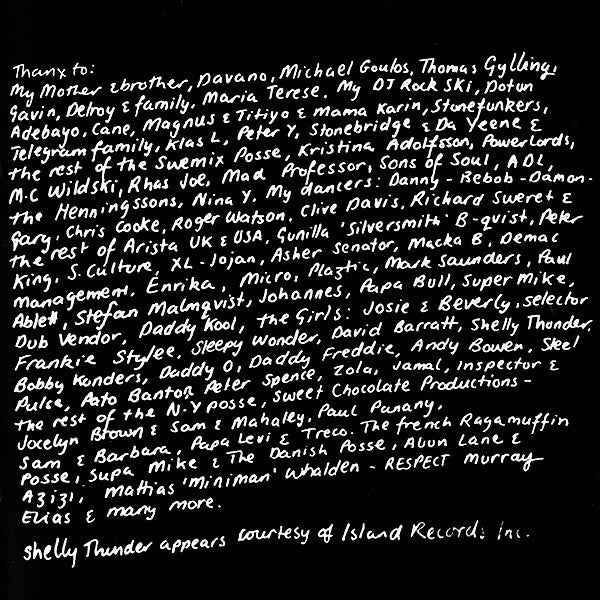 Thanx to:
My Mother & brother, Davano, Michael Goulos, Thomas Gylling,
Gavin, Delroy & family. Maria Terese. My DJ Rock Ski, Dotun
Adebayo, Cane, Magnus & Titiyo & Mama Karin, Stonefunkers,
Telegram family, Klas L, Peter Y, Stonebridge & Da Yeene &
the rest of the Swemix Posse, Kristina Adolfsson, Powerlords,
M.C Wildski, Rhas Joe, Mad Professor, Sons of Soul, ADL,
the Henningssons, Nina Y. My dancers: Danny - Bebob - Damon -
Gary, Chris Cooke, Roger Watson. Clive Davis, Richard Sweret &
the rest of Arista UK & USA, Gunilla 'Silversmith' B-qvist, Peter
King, S. Culture, XL-Jojan, Asher Senator, Macka B, Demac
Management, Enrika, Micro, Plaztic, Mark Saunders, Paul
Ablett, Stefan Malmqvist, Johannes, Papa Bull, Super Mike,
Dub Vendor, Daddy Kool, the Girls: Josie & Beverly, selector
Frankie Stylee, Sleepy Wonder, David Barratt, Shelly Thunder,
Bobby Konders, Daddy O, Daddy Freddie, Andy Bowen, Skel
Pulse, Pato Banton, Peter Spence, Zola, Jamal, Inspector &
the rest of the N.Y posse, Sweet Chocolate Productions -
Jocelyn Brown & Sam & Mahaley, Paul Punany,
Sam & Barbara, Papa Levi & Treco. The french Ragamuffin
Posse, Supa Mike & The Danish Posse, Alun Lane &
Azizi, Mathias 'Miniman' Whalden - RESPECT Murray
Elias & many more.
Shelly Thunder appears courtesy of Island Records Inc.